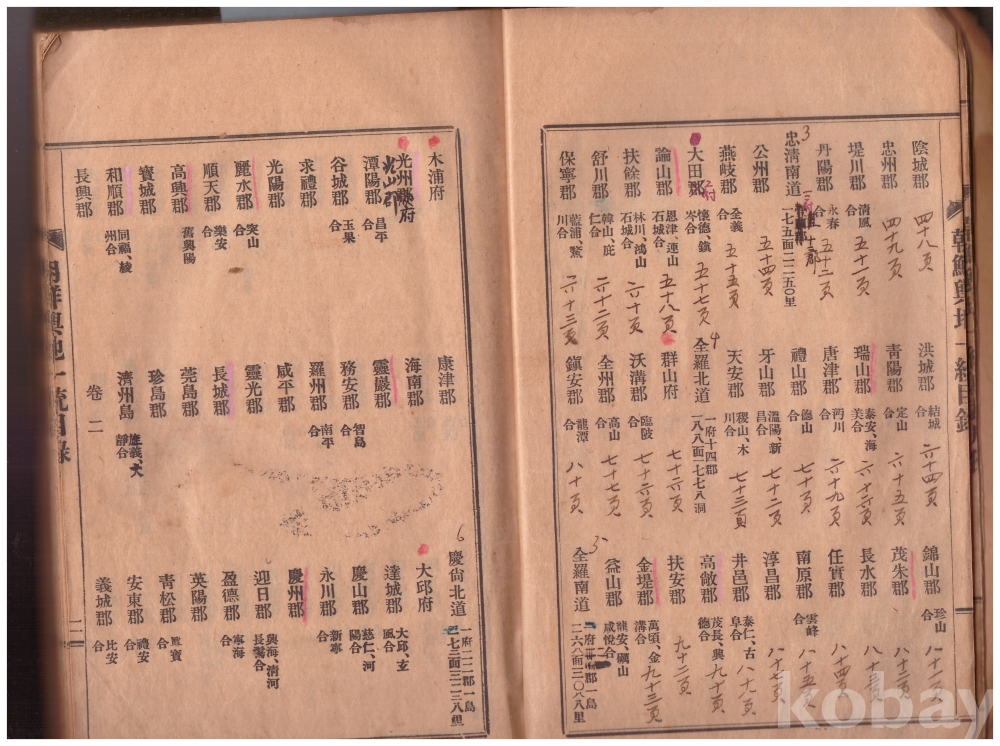 陰城郡 四十八頁
忠州郡 四十九頁
堤川郡 淸風合 五十一頁
丹陽郡 永春合 五十三頁
3 忠淸南道 一七五面二二五〇里
公州郡 五十四頁
燕岐郡 全義合 五十五頁
大田郡 府 懷德、鎭岑合 五十七頁
論山郡 恩津、連山石城合 五十八頁
扶餘郡 林川、鴻山石城合 六十頁
舒川郡 韓山、庇仁合 六十二頁
保寧郡 藍浦、鰲川合 六十三頁
洪城郡 結城合 六十四頁
靑陽郡 定山合 六十五頁
瑞山郡 泰安、海美合 六十六頁
唐津郡 沔川合 六十九頁
禮山郡 德山合 七十一頁
牙山郡 溫陽、新昌合 七十二頁
天安郡 稷山、木川合 七十三頁
4 全羅北道 一府十四郡一八八面一七七八洞
群山府 七十六頁
沃溝郡 臨陂合 七十六頁
全州郡 高山合 七十七頁
鎭安郡 龍潭合 八十頁
錦山郡 珍山合 八十一頁
茂朱郡 八十二頁
長水郡 八十三頁
任實郡 八十四頁
南原郡 雲峰合 八十五頁
淳昌郡 八十七頁
井邑郡 泰仁、古阜合 八十八頁
高敞郡 茂長、興德合 九十頁
扶安郡 九十二頁
金堤郡 萬頃、金溝合 九十三頁
益山郡 龍安、礪山咸悅合
5 全羅南道 二六八面二〇八八里
朝鮮輿地一統目錄
木浦府
光州郡府
光山郡
潭陽郡 昌平合
谷城郡 玉果合
求禮郡
光陽郡
麗水郡 突山合
順天郡 樂安合
高興郡 舊興陽
寶城郡
和順郡 同福、綾州合
長興郡
康津郡
海南郡
靈巖郡
務安郡 智島合
羅州郡 南平合
咸平郡
靈光郡
長城郡
莞島郡
珍島郡
濟州島 旌義、大靜合
6 慶尙北道
大邱府
達城郡 大邱、玄風合
慶山郡 慈仁、河陽合
永川郡 新寧合
慶州郡
迎日郡 興海、淸河長鬐合
盈德郡 寧海合
英陽郡
靑松郡 眞寶合
安東郡 禮安合
義城郡 比安合
朝鮮輿地一統目錄
卷二
二
kobay